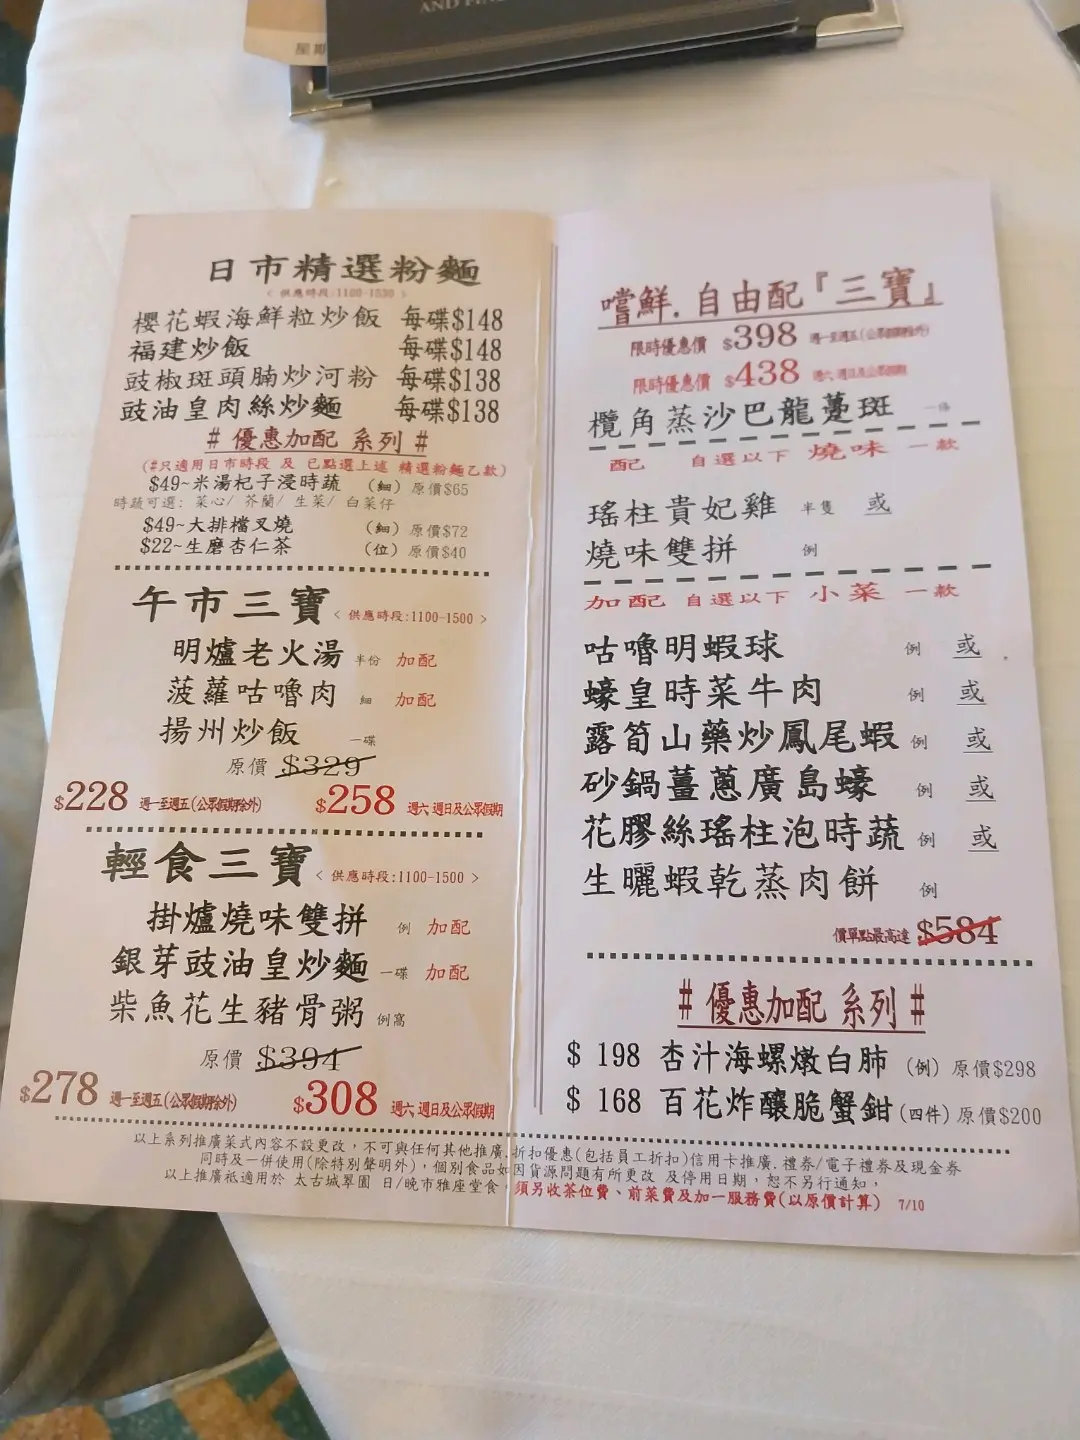 AND
星期
日市精選粉麵
< 供應時段:1100-1530 >
櫻花蝦海鮮粒炒飯 每碟$148
福建炒飯 每碟$148
豉椒斑頭腩炒河粉 每碟$138
豉油皇肉絲炒麵 每碟$138
# 優惠加配 系列 #
(#只適用日市時段 及 已點選上述 精選粉麵乙款)
$49~米湯杞子浸時蔬 (細) 原價$65
時蔬可選: 菜心/ 芥蘭/ 生菜/ 白菜仔
$49~大排檔叉燒 (細) 原價$72
$22~生磨杏仁茶 (位) 原價$40
午市三寶 < 供應時段:1100-1500 >
明爐老火湯 半份 加配
菠蘿咕嚕肉 細 加配
揚州炒飯 一碟
原價 $329
$228 週一至週五(公眾假期除外) $258 週六 週日及公眾假期
輕食三寶 < 供應時段:1100-1500 >
掛爐燒味雙拼 例 加配
銀芽豉油皇炒麵 一碟 加配
柴魚花生豬骨粥 例窩
原價 $394
$278 週一至週五(公眾假期除外) $308 週六 週日及公眾假期
嚐鮮.自由配『三寶』
限時優惠價 $398 週一至週五(公眾假期除外)
限時優惠價 $438 週六 週日及公眾假期
欖角蒸沙巴龍躉斑 一條
配 自選以下 燒味 一款
瑤柱貴妃雞 半隻 或
燒味雙拼 例
加配 自選以下 小菜 一款
咕嚕明蝦球 例 或
蠔皇時菜牛肉 例 或
露筍山藥炒鳳尾蝦 例 或
砂鍋薑蔥廣島蠔 例 或
花膠絲瑤柱泡時蔬 例 或
生曬蝦乾蒸肉餅 例
價單點最高達 $584
# 優惠加配 系列 #
$ 198 杏汁海螺燉白肺 (例) 原價$298
$ 168 百花炸釀脆蟹鉗 (四件) 原價$200
以上系列推廣菜式內容不設更改，不可與任何其他推廣.折扣優惠(包括員工折扣)信用卡推廣.禮券/電子禮券及現金券
同時及一併使用(除特別聲明外)，個別食品如因貨源問題有所更改 及停用日期，恕不另行通知，
以上推廣祗適用於 太古城翠園 日/晚市雅座堂食，須另收茶位費、前菜費及加一服務費(以原價計算) 7/10